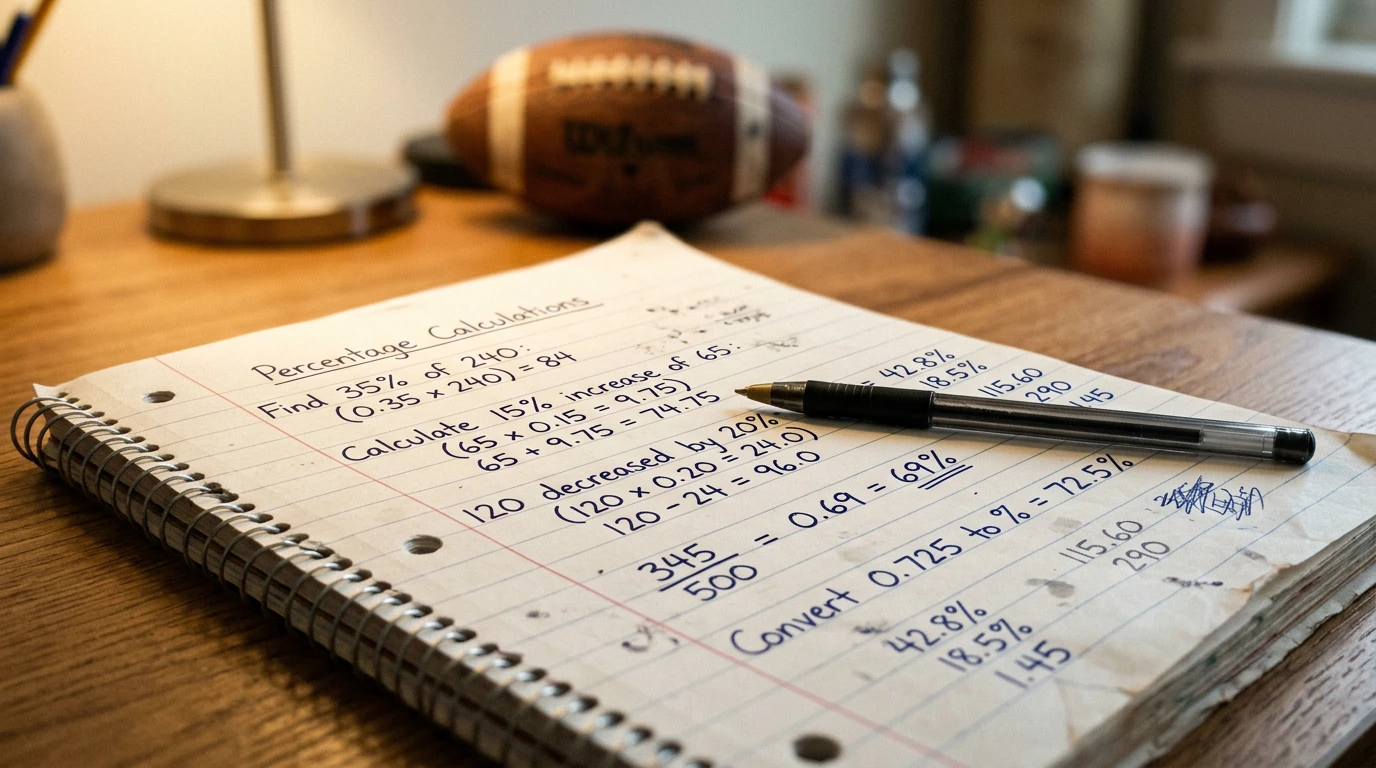 Percentage Calculations
Find 35% of 240:
(0.35 x 240) = 84
Calculate 15% increase of 65:
(65 x 0.15 = 9.75)
65 + 9.75 = 74.75
120 decreased by 20%
(120 x 0.20 = 24.0)
120 - 24 = 96.0
= 42.8%
18.5%
115.60
290
345
500
= 0.69 = 69%
Convert 0.725 to % = 72.5%
115.60
290
42.8%
18.5%
1.45